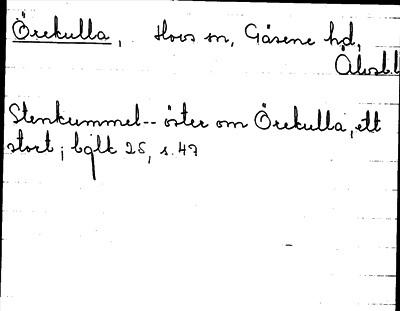 Örekulla, Hovs sn, Gäsene hd,
Älvsb.l
Stenkummel-- öster om Örekulla, ett
stort; bglt 25, s. 47